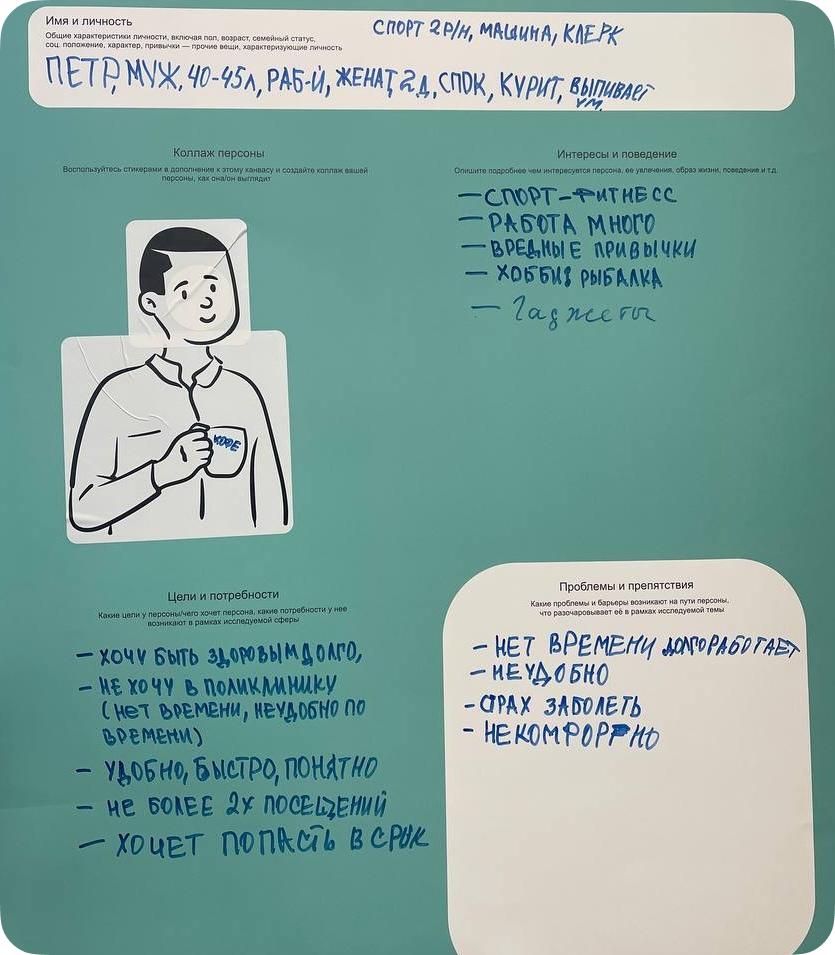 Имя и личность
Общие характеристики личности, включая пол, возраст, семейный статус,
соц. положение, характер, привычки — прочие вещи, характеризующие личность
СПОРТ 2Р/Н, МАШИНА, КЛЕРК
ПЕТР, МУЖ, 40-45л, РАБ-Й, ЖЕНАТ, 2Д, СПОК, КУРИТ, ВЫПИВАЕТ
УМ.
Коллаж персоны
Воспользуйтесь стикерами в дополнение к этому канвасу и создайте коллаж вашей
персоны, как она/он выглядит
КОФЕ
Интересы и поведение
Опишите подробнее чем интересуется персона, ее увлечения, образ жизни, поведение и т.д.
— СПОРТ-ФИТНЕСС
— РАБОТА МНОГО
— ВРЕДНЫЕ ПРИВЫЧКИ
— ХОББИ: РЫБАЛКА
— Гаджеты
Цели и потребности
Какие цели у персоны/чего хочет персона, какие потребности у нее
возникают в рамках исследуемой сферы
— ХОЧУ БЫТЬ ЗДОРОВЫМ ДОЛГО,
— НЕ ХОЧУ В ПОЛИКЛИНИКУ
(НЕТ ВРЕМЕНИ, НЕУДОБНО ПО
ВРЕМЕНИ)
— УДОБНО, БЫСТРО, ПОНЯТНО
— НЕ БОЛЕЕ 2Х ПОСЕЩЕНИЙ
— ХОЧЕТ ПОПАСТЬ В СРОК
Проблемы и препятствия
Какие проблемы и барьеры возникают на пути персоны,
что разочаровывает её в рамках исследуемой темы
— НЕТ ВРЕМЕНИ ДОЛГО РАБОТАЕТ
— НЕУДОБНО
- СТРАХ ЗАБОЛЕТЬ
- НЕКОМФОРТНО